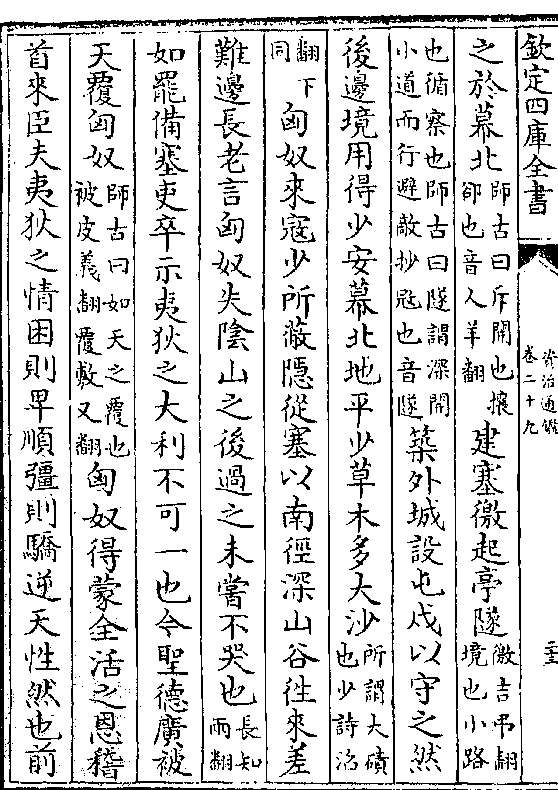 欽定四庫全書
資治通鑑
卷二十九
三十三
之於幕北師古曰斥開也攘
郤也音人羊翻建塞徼起亭隧徼吉弔翻
境也小路
也循察也師古曰隧謂深開
小道而行避敵抄寇也音隧築外城設屯戍以守之然
後邊境用得少安幕北地平少草木多大沙所謂大磧
也少詩沼
翻下
同匈奴來寇少所蔽隱從塞以南徑深山谷往來差
難邊長老言匈奴失陰山之後過之未嘗不哭也長知
兩翻
如罷備塞吏卒示夷狄之大利不可一也今聖德廣被
天覆匈奴師古曰如天之覆也
被皮義翻覆敷又翻匈奴得蒙全活之恩稽
首來臣夫夷狄之情困則卑順彊則驕逆天性然也前